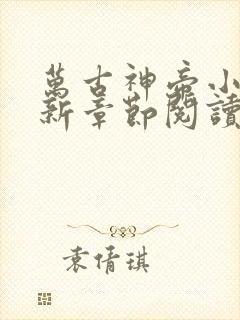 萬古神帝小
新章節閱讀
袁倩琪